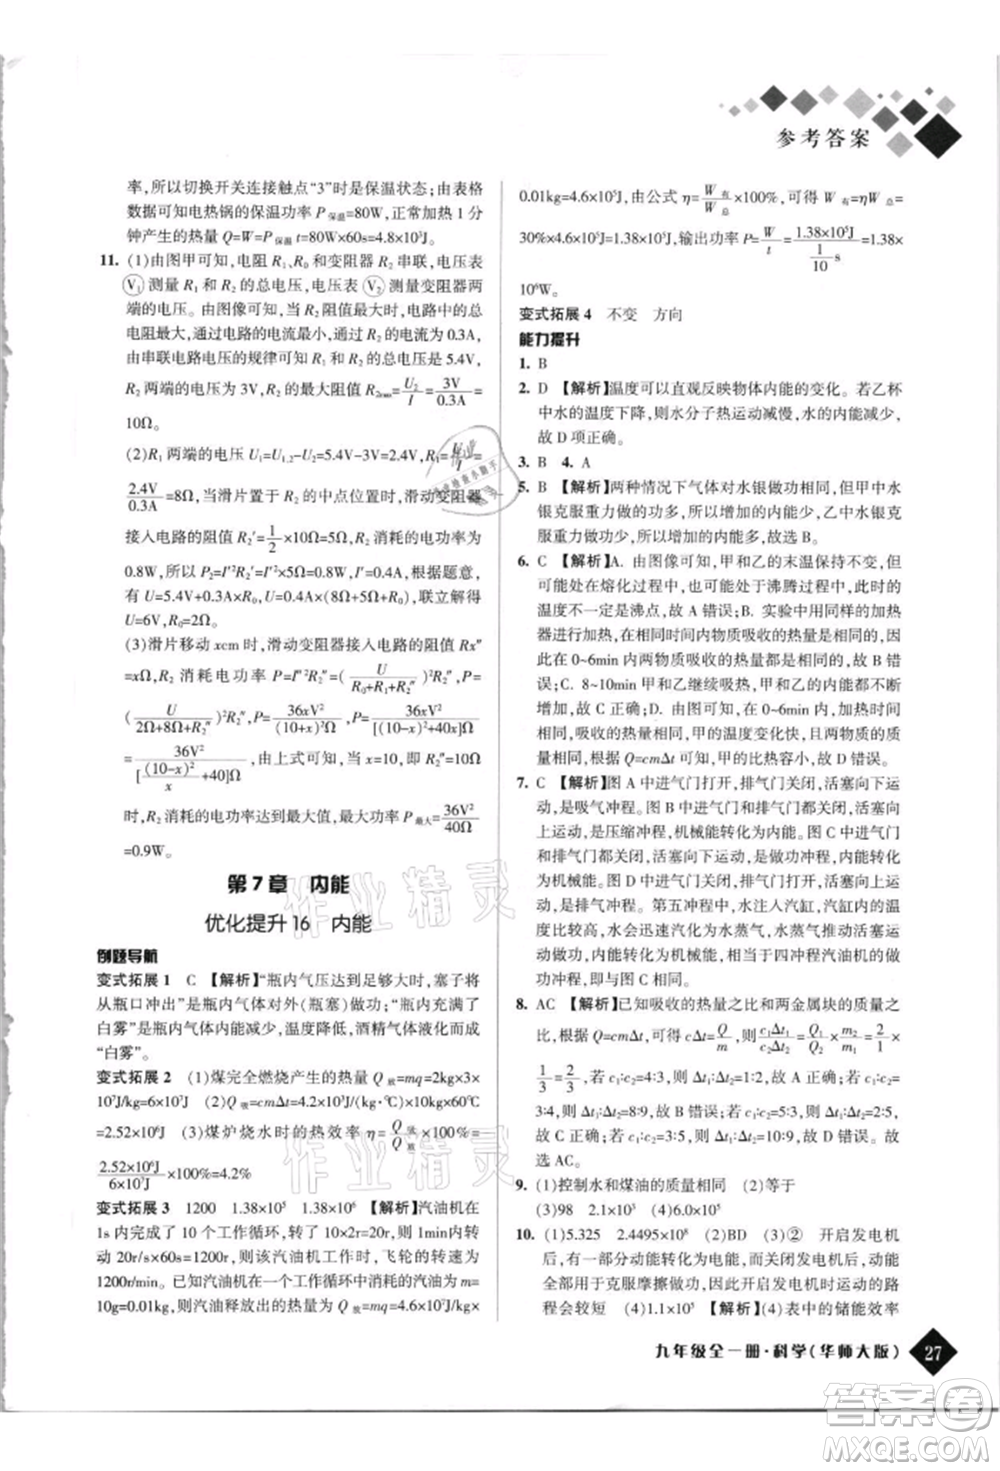 参考答案
率,所以切换开关连接触点“3”时是保温状态;由表格
数据可知电热锅的保温功率 P保温=80W,正常加热 1 分
钟产生的热量 Q=W=P保温 t=80W×60s=4.8×10³J。
11. (1)由图甲可知,电阻R₁、R₀ 和变阻器 R₂ 串联,电压表
V₁ 测量 R₁ 和 R₂ 的总电压,电压表 V₂ 测量变阻器两
端的电压。由图像可知,当 R₂ 阻值最大时,电路中的总
电阻最大,通过电路的电流最小,R₂ 的电流为 0.3A,
由串联电路电压的规律可知 R₁ 与 R₂ 的总电压是 5.4V,
R₂ 两端的电压为 3V,R₂ 的最大阻值 R₂max=U₂/I=3V/0.3A=
10Ω。
(2)R₁ 两端的电压 U₁=U₁,₂-U₂=5.4V-3V=2.4V,R₁=U₁/I=
2.4V/0.3A=8Ω,当滑片置于 R₂ 的中点位置时,滑动变阻器
接入电路的阻值 R₂′=1/2×10Ω=5Ω,R₂ 消耗的电功率为
0.8W,所以 P₂=I′²R₂′=I′²×5Ω=0.8W,I′=0.4A,根据题意,
有 U=5.4V+0.3A×R₀,U=0.4A×(8Ω+5Ω+R₀),联立解得
U=6V,R₀=2Ω。
(3)滑片移动 xcm 时,滑动变阻器接入电路的阻值 Rx″
=xΩ,R₂ 消耗电功率 P=I″²R₂″=(U/(R₀+R₁+R₂″))²R₂″=
(U/(2Ω+8Ω+R₂″))²R₂″=36xV²/(10+x)²Ω=36xV²/[(10-x)²+40x]Ω
=36V²/[(10-x)²/x+40]Ω,由上式可知,当 x=10,即R₂″=10Ω
时,R₂ 消耗的电功率达到最大值,最大值 P最大=36V²/40Ω
=0.9W。
第 7 章 内能
优化提升 16 内能
例题导航
变式拓展 1 C 【解析】“瓶内气压达到足够大时,塞子将
从瓶口冲出”是瓶内气体对外(瓶塞)做功;“瓶内充满了
白雾”是瓶内气体内能减少,温度降低,酒精气体液化而成
“白雾”。
变式拓展 2 (1)煤完全燃烧产生的热量 Q放=mq=2kg×3×
10⁷J/kg=6×10⁷J (2)Q吸=cmΔt=4.2×10³J/(kg·℃)×10kg×60℃
=2.52×10⁶J (3)煤炉烧水时的热效率 η=Q吸/Q放×100%=
2.52×10⁶J/6×10⁷J×100%=4.2%
变式拓展 3 1200 1.38×10⁵ 1.38×10⁶ 【解析】汽油机在
1s 内完成了 10 个工作循环,转了 10×2r=20r,则 1min内转
动 20r/s×60s=1200r,则该汽油机工作时,飞轮的转速为
1200r/min。已知汽油机在一个工作循环中消耗的汽油为 m=
10g=0.01kg,汽油释放出的热量 Q放=mq=4.6×10⁷J/kg×
0.01kg=4.6×10⁵J,由公式 η=W有/W总×100%,可得 W有=ηW总=
30%×4.6×10⁵J=1.38×10⁵J,输出功率 P=W/t=1.38×10⁵J/(1/10 s)=1.38×
10⁶W。
变式拓展 4 不变 方向
能力提升
1. B
2. D 【解析】温度可以直观反映物体内能的变化。若乙杯
中水的温度下降,则水分子热运动减慢,水的内能减少,
故 D 项正确。
3. B 4. A
5. B 【解析】两种情况下气体对水银做功相同,但甲中水
银克服重力做的功多,所以增加的内能少,而乙中水银克
服重力做功少,所以增加的内能多,故选 B。
6. C 【解析】A. 由图像可知,甲和乙的末温保持不变,但
可能处在熔化过程中,也可能处于沸腾过程中,即此时的
温度不一定是沸点,故 A 错误;B. 实验中用同样的加热
器加热,在相同时间内物质吸收的热量相同,由图像可知,
在 0~6min 内两物质吸收的热量相同,故 B 错
误;C. 8~10min 内甲和乙继续吸热,甲和乙的温度保持不
变,但内能增大,故 C 正确;D. 由图可知,在 0~6min 内,
初温相同,吸热相同,质量相同,甲的温度变化快,升高的
温度大,根据Q=cmΔt 可知,甲的比热容小,故 D 错误。
7. C 【解析】图 A 中进气门打开,排气门关闭,活塞向下运
动,是吸气冲程。图 B 中进气门和排气门都关闭,活塞向
上运动,是压缩冲程,机械能转化为内能。图 C 中进气门
和排气门都关闭,活塞向下运动,是做功冲程,内能转化为
机械能。图 D 中进气门关闭,排气门打开,活塞向上运
动,是排气冲程。第五冲程中,水注入汽缸,汽缸内的水温
度很高,水会迅速汽化为水蒸气,水蒸气推动活塞运动做
功,将内能转化为机械能,相当于四冲程汽油机的做功冲
程,即与图 C 冲程相同。
8. AC 【解析】已知吸收的热量之比和两金属块的质量之
比,根据 Q=cmΔt,可得 cΔt=Q/m,则c₁Δt₁/c₂Δt₂=Q₁/Q₂×m₂/m₁=2/1×
1/3=2/3,若 c₁:c₂=4:3,则Δt₁:Δt₂=1:2,故 A 正确;若 c₁:c₂=
3:4,则Δt₁:Δt₂=8:9,故 B 错误;若 c₁:c₂=5:3,则Δt₁:Δt₂=2:5,
故 C 正确;若 c₁:c₂=3:5,则Δt₁:Δt₂=10:9,故 D 错误。故
选 AC。
9. (1)控制水和煤油的质量相同 (2)等于
(3)98 2.1×10³ (4)6.0×10⁵
10. (1)5.325 2.4495×10⁸ (2)BD (3)② 开启发电机
后,有一部分动能转化为电能,而关闭发电机后,动能
全部用于克服摩擦做功,因此开启发电机时运动的路
程会较短 (4)1.1×10⁵ 【解析】(4)表中的储能效率
九年级全一册·科学(华师大版) 27
作业精灵
作业精灵
答案圈
MXQE.COM